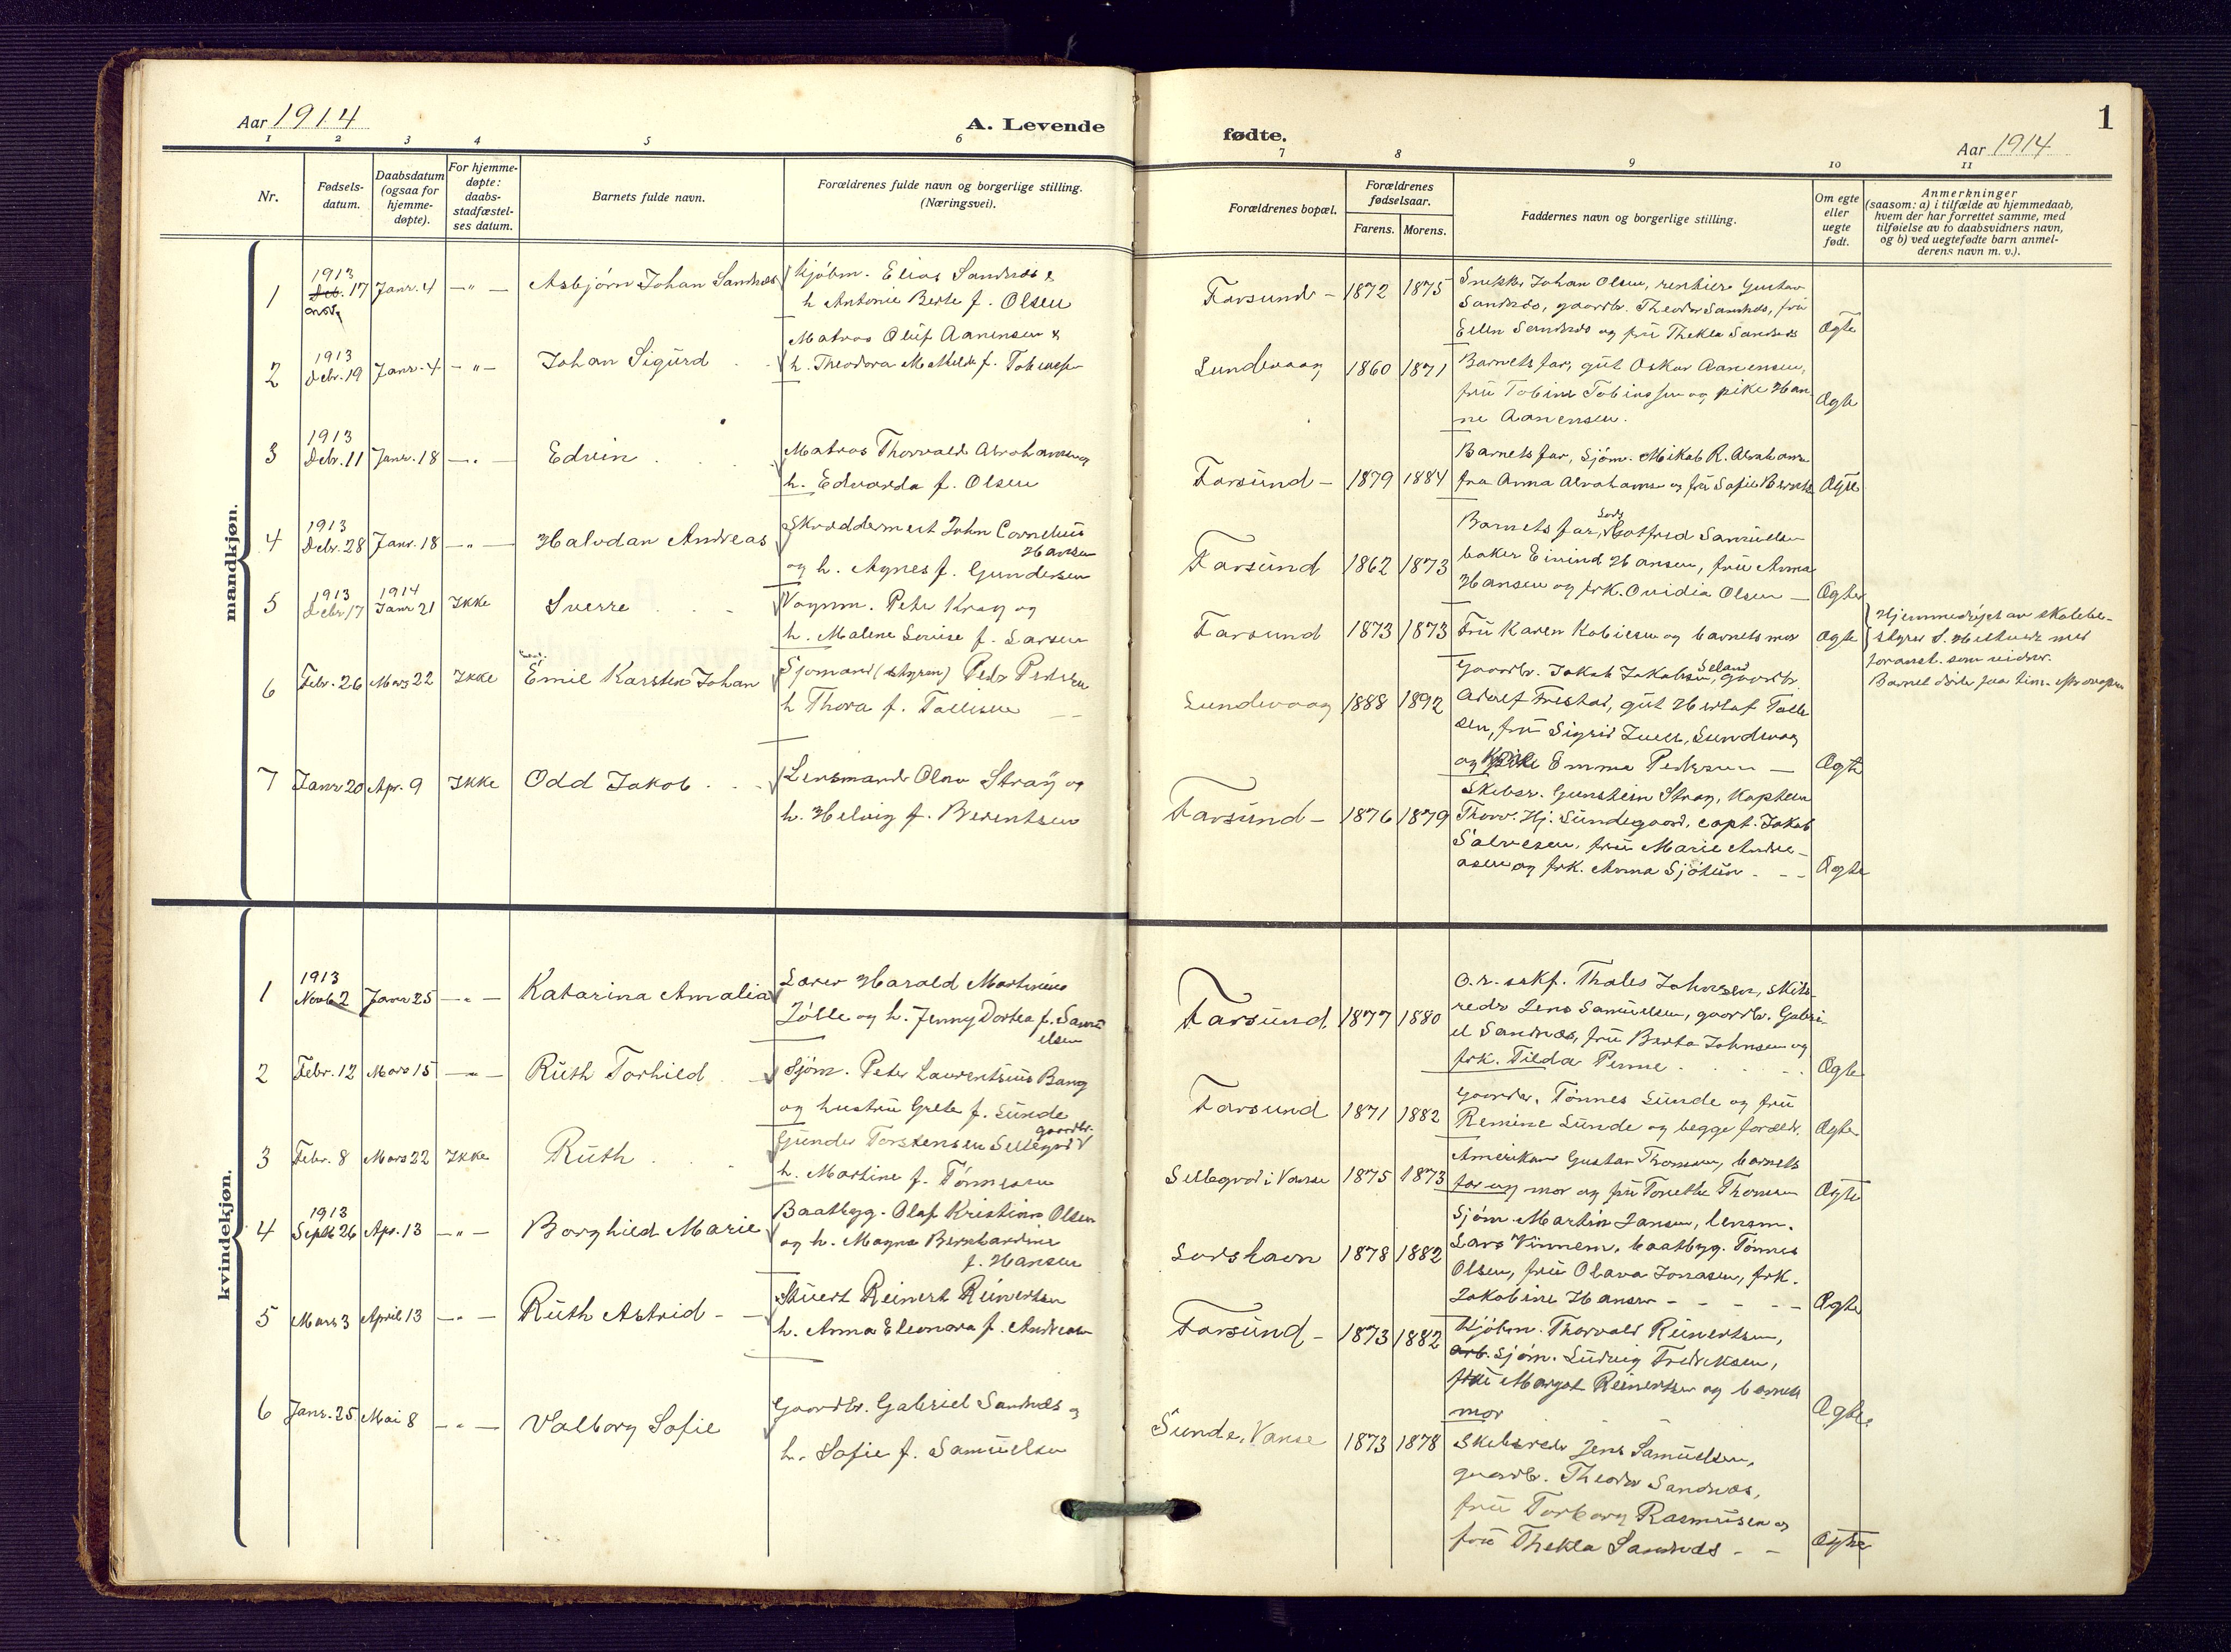 Aar 1914
A. Levende
fødte.
Aar 1914
1
1 2 3 4 5 6 7 8 9 10 11
Nr.
Fødsels-
datum.
Daabsdatum
(ogsaa for
hjemme-
døpte).
For hjemme-
døpte:
daabs-
stadfæstel-
ses datum.
Barnets fulde navn.
Forældrenes fulde navn og borgerlige stilling.
(Næringsvei).
Forældrenes bopæl.
Forældrenes
fødselsaar.
Farens. Morens.
Faddernes navn og borgerlige stilling.
Om egte
eller
uegte
født.
Anmerkninger
(saasom: a) i tilfælde av hjemmedaab,
hvem der har forrettet samme, med
tilføielse av to daabsvidners navn,
og b) ved uegtefødte barn anmel-
derens navn m. v.).
mandkjøn.
1 1913 17 Janr. 4 —"— Asbjørn Johan Sandnæs
Kjøbm. Elias Sandnæs &
h Antonie Berte f. Olsen
Farsund – 1872 1875
Snekker Johan Olsen, rentier Gustav
Sandnæs, gaardbr. Theodor Sandnæs, frü
Ellen Sandnæs og frü Thekla Sandnæs
Ægte
2 1913 Debr. 19 Janr. 4 —"— Johan Sigurd
Matros Oluf Aanensen &
h. Theodora Mathilde f. Tobiassen
Lundevaag 1860 1871
Barnets far, güt Oskar Aanensen,
frü Tobine Tobiassen og pike Han-
ne Aanensen.
Ægte
3 1913 Debr. 11 Janr. 18 —"— Edvin
Matros Thorvald Abrahamsen og
h. Edvarda f. Olsen
Farsund – 1879 1884
Barnets far, sjøm. Mikal R. Abrahams
Anna Abrahamsen og frü Sofie
Ægte
4 1913 Debr. 28 Janr. 18 —"— Halvdan Andreas
Skræddermest John Cornelius
Hansen
og h. Agnes f. Gundersen
Farsund 1862 1873
Barnets far, Gotfred Samüelsen
baker Eivind Hansen, früe Anna
Hansen og frk. Ovidia Olsen —
Ægte
5 1913 Debr 17 1914 Janr 21 Ikke Sverre
Vognm. Peter Krag og
h. Malene Louise f. Larsen
Farsund 1873 1873
Frü Karen Kobiesen og barnets mor
Ægte
Hjemmedøpt av skolebe-
styrer
foranst. som vidner.
6 Febr. 26 Mars 22 Ikke Emil Karsten Johan
Sjømand (styrm) Peder Pedersen
h Thora f. Tallisen
Lundevaag 1888 1892
Gaardbr. Jakob Jakobsen Seland, gaardbr
Adolf Frestad, güt Herlof Talle
sen, frü Sigrid Lund, Lundevaag
og pike Emma Pedersen —
Ægte
7 Janr 20 Apr. 9 Ikke Odd Jakob
Lensmand Olav Stray og
h. Helvig f. Berentsen
Farsund – 1876 1879
Skibsr. Gunstein Stray, Kaptein
Thorv. Hj. Sündegaard, capt. Jakob
Salvesen, frü Marie Andre-
asen og frk. Anna Sjölün
Ægte
kvindekjøn.
1 1913 Novb 2 Janr 25 —"— Katarina Amalia
Lærer Harald Martinius
Jølle og h. Jenny Dortea f. Samü
elsen
Farsund 1877 1880
o.r. sakf. Thales Johnsen, skibs-
reder Jens Samüelsen, gaardbr. Gabri-
el Sandnæs, frü Berta Johnsen og
frk. Tilda Penne
Ægte
2 Febr. 12 Mars 15 —"— Rüth Torhild
Sjøm. Peter Laurentsius Bang
og hustrü Grete f. Sünde
Farsund 1871 1882
Gaardbr. Tønnes Sünde og frü
Remine Sünde og begge foreldr.
Ægte
3 Febr. 8 Mars 22 Ikke Rüth
gaardbr.
Günder Torstensen Sellegrod
h. Martine f. Tønnesen
Sellegrod i Vanse 1875 1873
Amerikan Gustav Thomsen, barnets
far og mor og frü Tonette Thomsen
Ægte
4 1913 Septb 26 Apr. 13 —"— Borghild Marie
Baatbyg. Olaf Kristian Olsen
og h. Magna Bernhardine
f. Hansen
Loshavn 1878 1882
Sjøm. Martin Jansen, lensm.
Lars Vinnem, baatbyg. Tønnes
Olsen, frü Olava Jonasen, frk.
Jakobine Hansen – – – –
Ægte
5 Mars 3 April 13 —"— Rüth Astrid –
Stüert Reinert Reinertsen
h. Anna Eleonora f. Andreasen
Farsünd – 1873 1882
Kjøbm. Thorvald Reinertsen,
arb. sjøm. Ludvig Fredriksen,
frü Margot Reinertsen og barnets
mor
Ægte
6 Janr. 25 Mai 8 —"— Valborg Sofie
Gaardbr. Gabriel Sandnæs og
h. Sofie f. Samüelsen
Sunde, Vanse 1873 1878
Skibsreder Jens Samüelsen,
gaardbr. Theodor Sandnæs,
frü Torborg Rasmüsen og
frü Thekla Sandnæs – –
Ægte